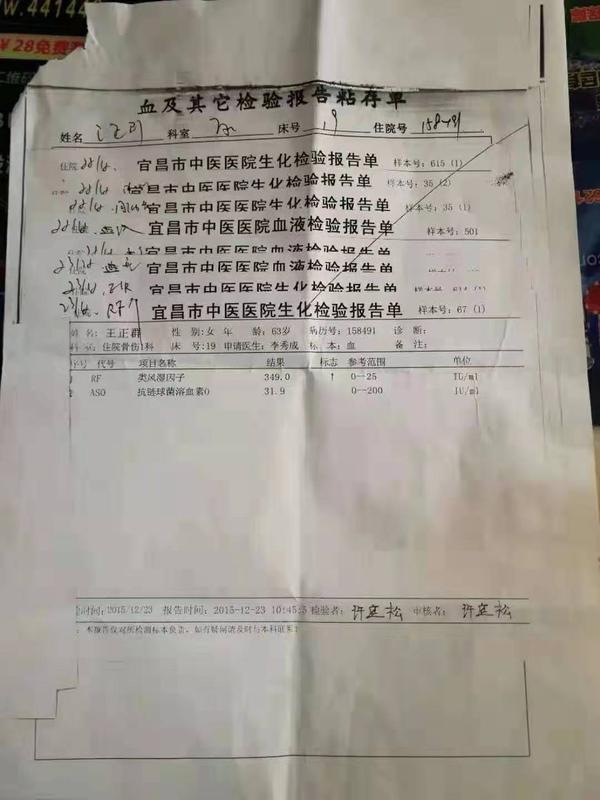 www.441444
￥28免费
血及其它检验报告粘存单
姓名 科室 床号 19 住院号 158491
住院 宜昌市中医医院生化检验报告单 样本号：615 (1)
宜昌市中医医院生化检验报告单 样本号：35 (2)
宜昌市中医医院生化检验报告单 样本号：35 (1)
宜昌市中医医院血液检验报告单 样本号：501
宜昌市中医医院血液检验报告单
宜昌市中医医院血液检验报告单 样本号
宜昌市中医医院生化检验报告单 样本号：614 (1)
RF 宜昌市中医医院生化检验报告单 样本号：67 (1)
姓 名：王正群 性 别：女 年 龄：63岁 病历号：158491 诊 断：
科 室：住院骨伤1科 床 号：19 申请医生：李秀成 标 本：血 备 注：
序号 代号 项目名称 结果 标志 参考范围 单位
RF 类风湿因子 349.0 ↑ 0--25 IU/ml
ASO 抗链球菌溶血素O 31.9 0--200 IU/ml
时间：2015/12/23 报告时间：2015-12-23 10:45:5 检验者：许运松 审核者：许运松
：本报告仅对所检测标本负责，如有疑问请及时与本科联系！